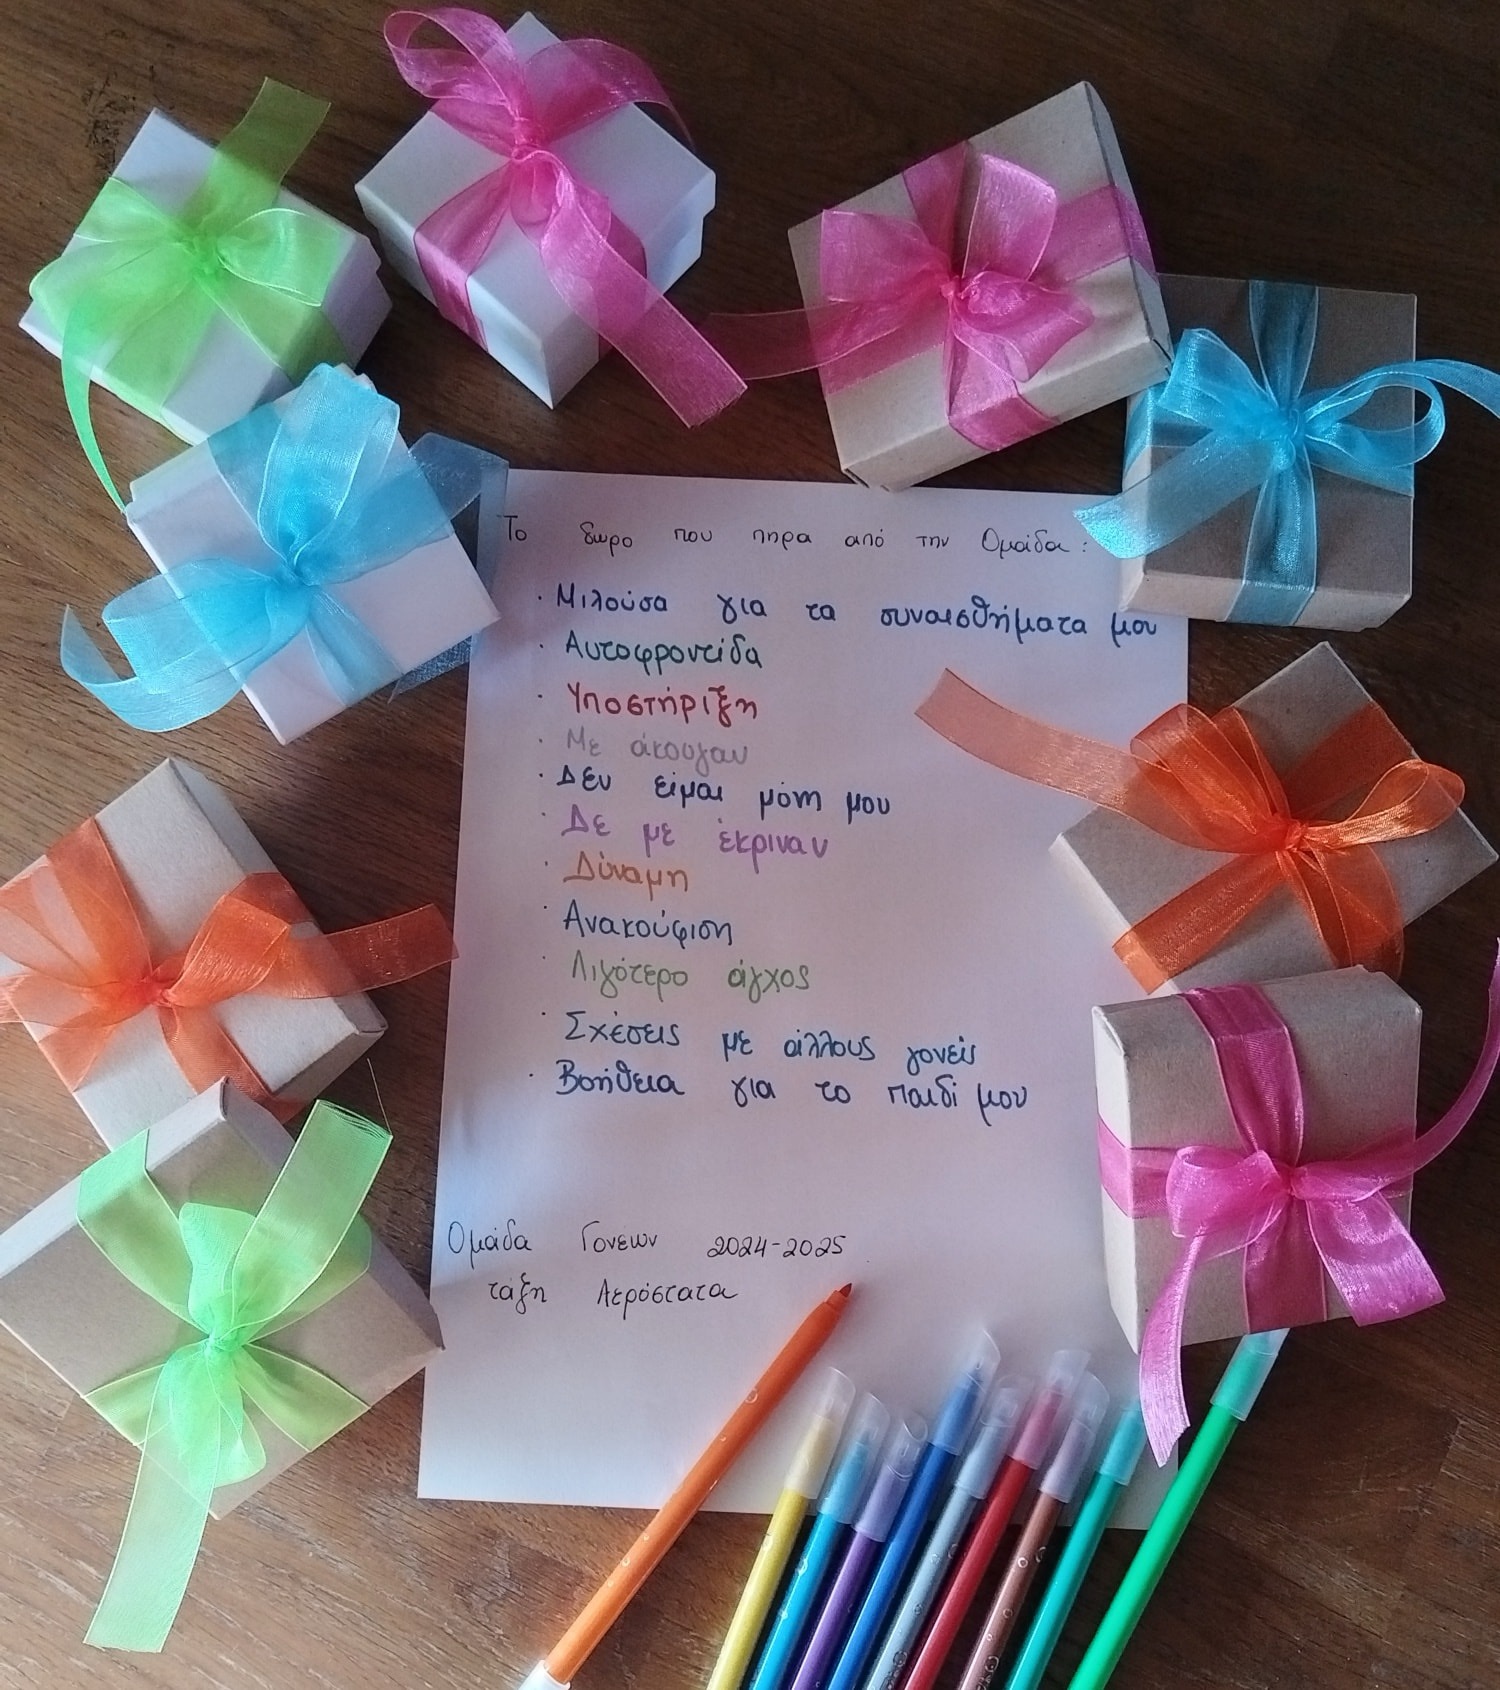 Το δωρο που πηρα από την Ομάδα:
· Μιλούσα για τα συναισθήματα μου
· Αυτοφροντίδα
· Υποστήριξη
· Με άκουγαν
· Δεν είμαι μόνη μου
· Δε με έκριναν
· Δύναμη
· Ανακούφιση
· Λιγότερο άγχος
· Σχέσεις με άλλους γονείς
· Βοήθεια για το παιδί μου
Ομάδα Γονέων 2024-2025
τάξη Αερόστατα